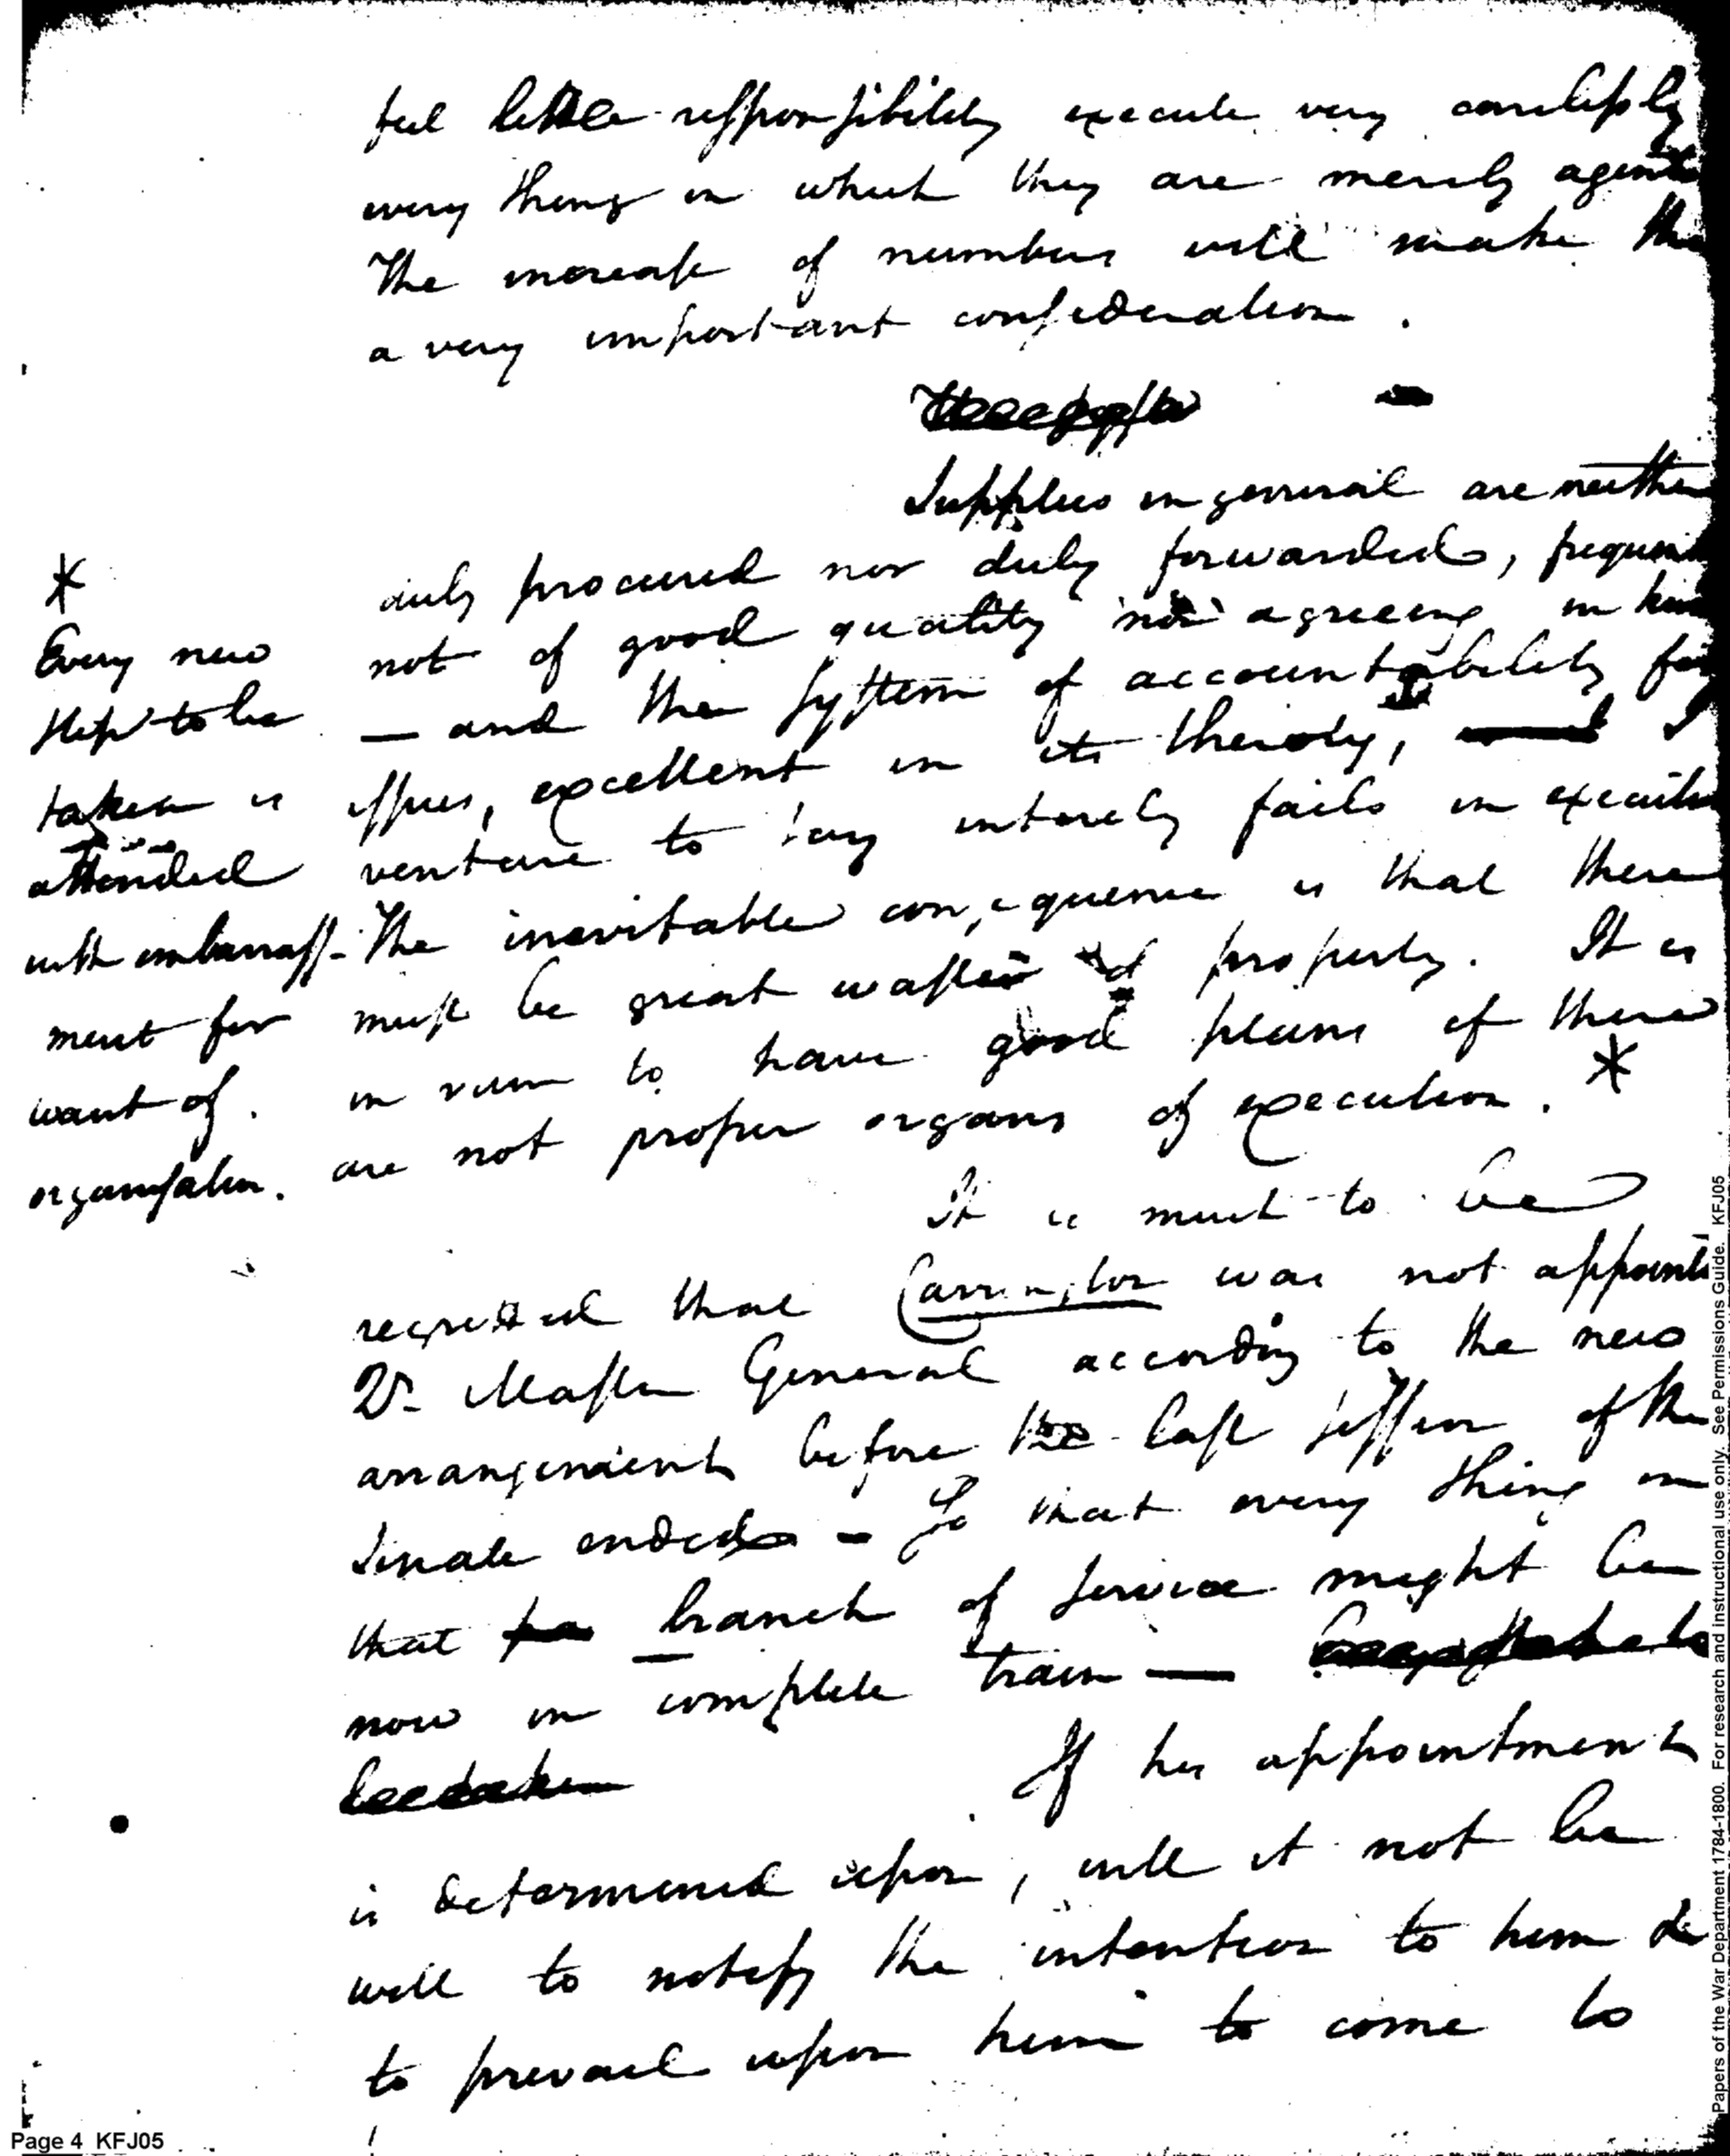 feel little responsibility execute very carelessly
every thing in which they are merely agents
The increase of numbers will make this
a very important consideration.
Supplies in general are neither
duly procured nor duly forwarded, frequently
not of good quality nor agreeing in kind
— and the system of accountability for
issues, excellent in its theroty, I
venture to say intirely fails in execution
The inevitable consequence is that there
must be great waste of property. It is
in vain to have good plans if there
are not proper organs of execution. *
*
Every new
step to be
taken is
attended
with embarrass-
ment for
want of
organisation.
It is much to be
regretted that Carrington was not appointed
Qr Master General according to the new
arrangement before the last session of the
Senate ended — So that every thing in
that branch of service might be
now in complete train —
If his appointment
is determined upon, will it not be
well to notify the intention to him &
to prevail upon him to come to
Page 4 KFJ05
Papers of the War Department 1784-1800. For research and instructional use only. See Permissions Guide. KFJ05